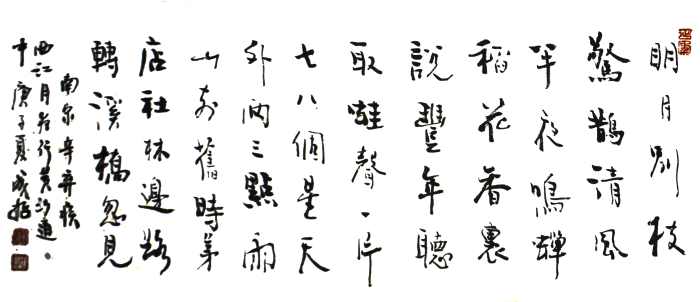 明月別枝
驚鵲清風
半夜鳴蟬
稻花香裏
說豐年聽
取蛙聲一片
七八個星天
外兩三點雨
山前舊時茅
店社林邊路
轉溪橋忽見
南宋辛弃疾
西江月夜行黄沙道
中庚子夏